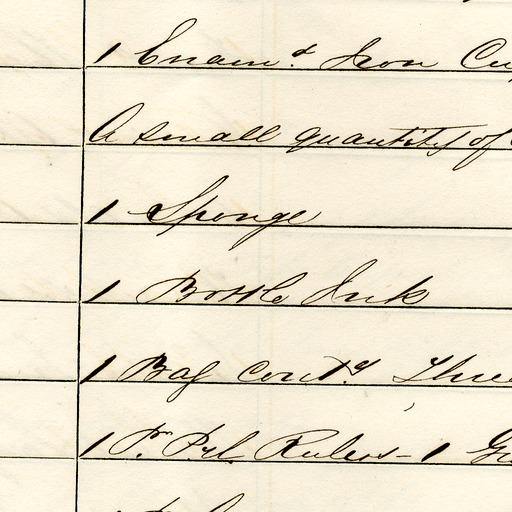 1 Enam.d Iron Cu
A small quantity of
1 Sponge
1 Bottle Ink
1 Bag Cont.d Thre
1 Pr. Prl. Rulers - 1